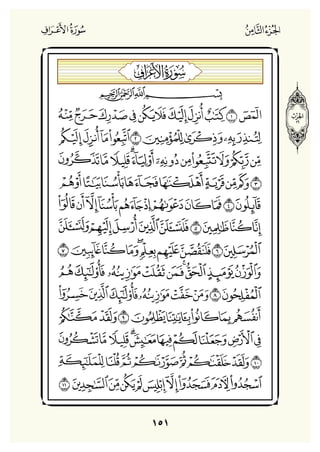 الجُزْءُ الثَّامِنُ
سُورَةُ الأَعْرَافِ
سُورَةُ الأَعْرَافِ
بِسْمِ ٱللَّهِ ٱلرَّحْمَٰنِ ٱلرَّحِيمِ
الٓمٓصٓ ١ كِتَٰبٌ أُنزِلَ إِلَيْكَ فَلَا يَكُن فِي صَدْرِكَ حَرَجٌ مِّنْهُ
لِتُنذِرَ بِهِۦ وَذِكْرَىٰ لِلْمُؤْمِنِينَ ٢ ٱتَّبِعُوا۟ مَآ أُنزِلَ إِلَيْكُم
مِّن رَّبِّكُمْ وَلَا تَتَّبِعُوا۟ مِن دُونِهِۦٓ أَوْلِيَآءَ ۗ قَلِيلًا مَّا تَذَكَّرُونَ
٣ وَكَم مِّن قَرْيَةٍ أَهْلَكْنَٰهَا فَجَآءَهَا بَأْسُنَا بَيَٰتًا أَوْ هُمْ
قَآئِلُونَ ٤ فَمَا كَانَ دَعْوَىٰهُمْ إِذْ جَآءَهُم بَأْسُنَآ إِلَّآ أَن قَالُوٓا۟
إِنَّا كُنَّا ظَٰلِمِينَ ٥ فَلَنَسْـَٔلَنَّ ٱلَّذِينَ أُرْسِلَ إِلَيْهِمْ وَلَنَسْـَٔلَنَّ
ٱلْمُرْسَلِينَ ٦ فَلَنَقُصَّنَّ عَلَيْهِم بِعِلْمٍ ۖ وَمَا كُنَّا غَآئِبِينَ ٧
وَٱلْوَزْنُ يَوْمَئِذٍ ٱلْحَقُّ ۚ فَمَن ثَقُلَتْ مَوَٰزِينُهُۥ فَأُو۟لَٰٓئِكَ هُمُ
ٱلْمُفْلِحُونَ ٨ وَمَنْ خَفَّتْ مَوَٰزِينُهُۥ فَأُو۟لَٰٓئِكَ ٱلَّذِينَ خَسِرُوٓا۟
أَنفُسَهُم بِمَا كَانُوا۟ بِـَٔايَٰتِنَا يَظْلِمُونَ ٩ وَلَقَدْ مَكَّنَّٰكُمْ
فِي ٱلْأَرْضِ وَجَعَلْنَا لَكُمْ فِيهَا مَعَٰيِشَ ۗ قَلِيلًا مَّا تَشْكُرُونَ
١٠ وَلَقَدْ خَلَقْنَٰكُمْ ثُمَّ صَوَّرْنَٰكُمْ ثُمَّ قُلْنَا لِلْمَلَٰٓئِكَةِ
ٱسْجُدُوا۟ لِـَٔادَمَ فَسَجَدُوٓا۟ إِلَّآ إِبْلِيسَ لَمْ يَكُن مِّنَ ٱلسَّٰجِدِينَ ١١
١٥١